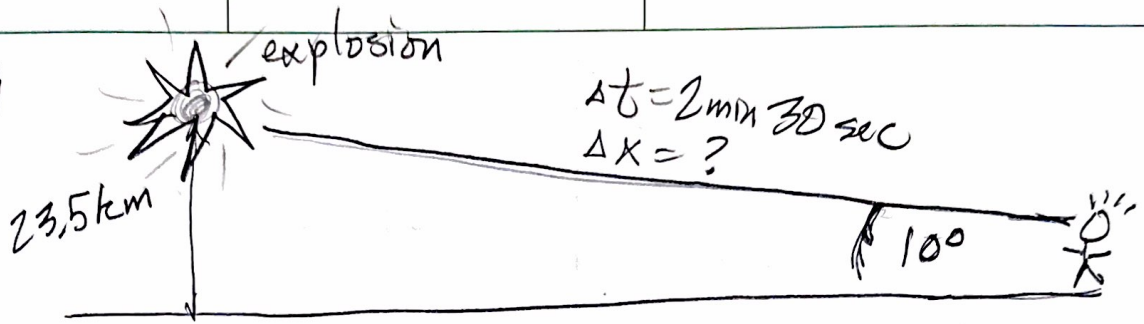 explosion
Δt = 2 min 30 sec
Δx = ?
23,5 km
10°